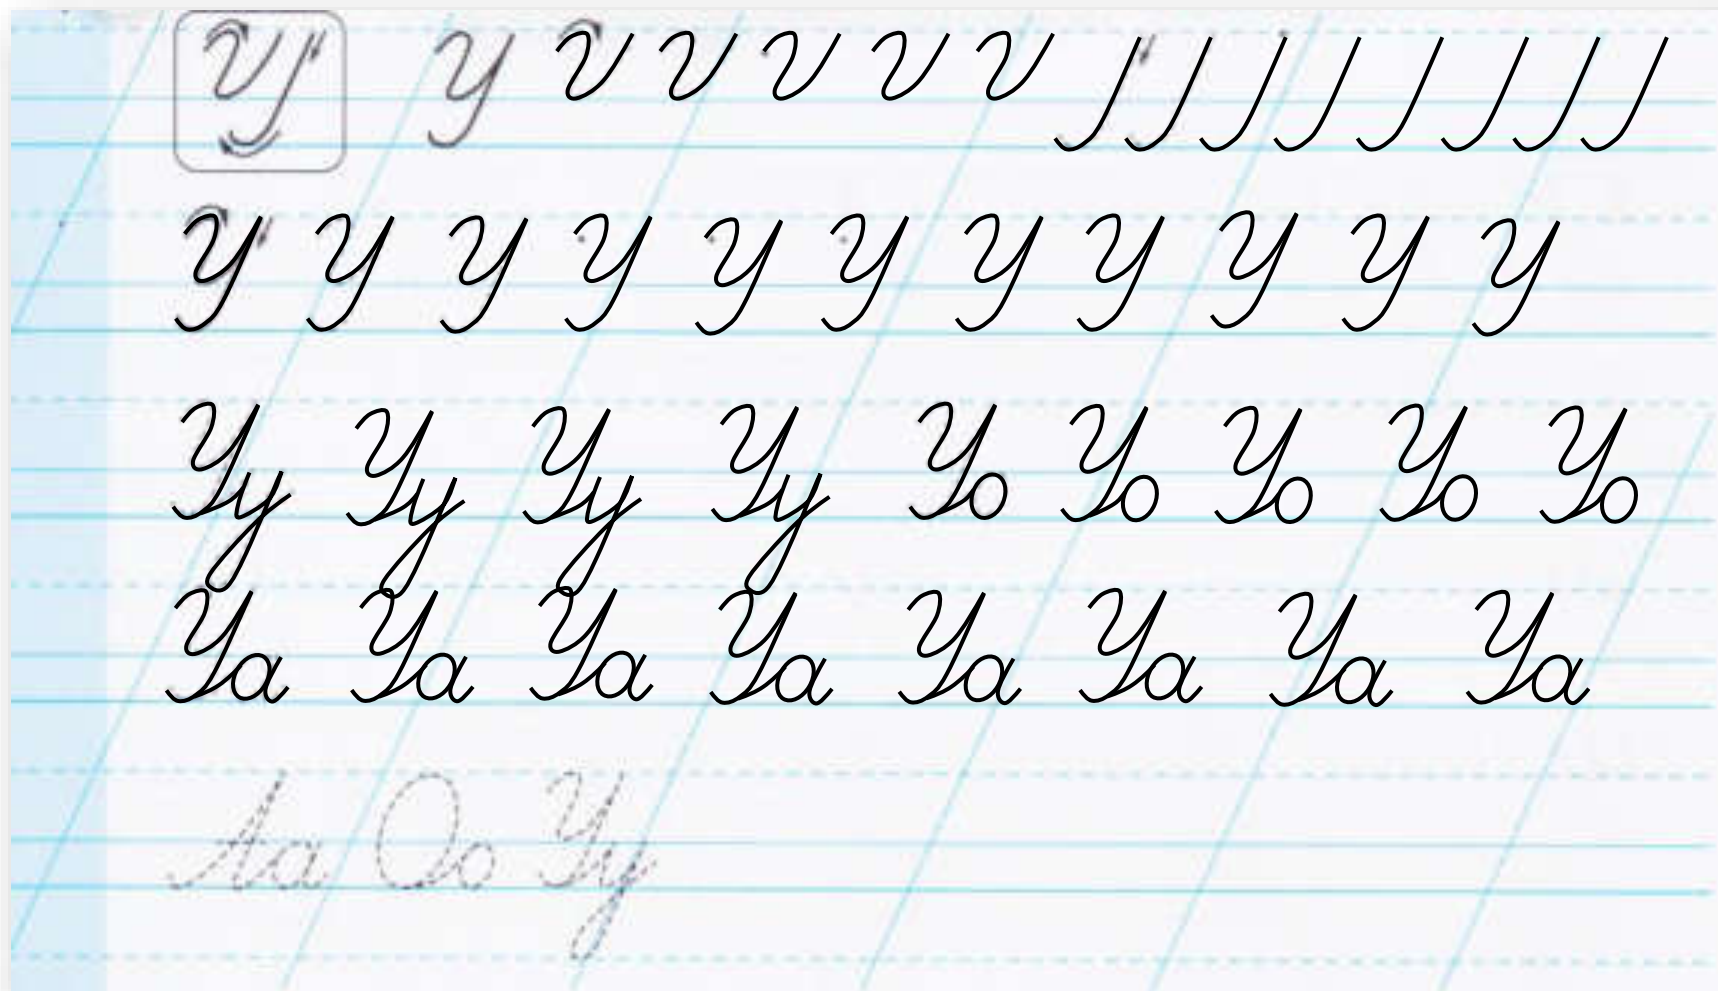 У
У У У У У У У У У У У
Уу Уу Уу Уу Уо Уо Уо Уо Уо
Уа Уа Уа Уа Уа Уа Уа Уа
Аа Оо Уу